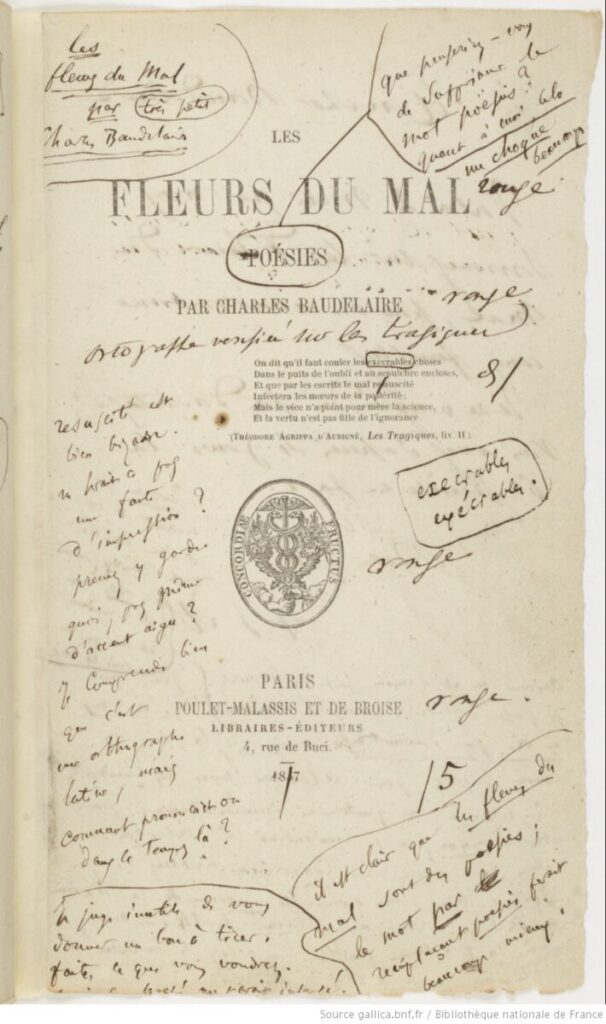 les
fleurs du Mal
par très petit
Charles Baudelaire
que penseriez-vous
de supprimer le
mot poësies ?
quant à moi cela
me choque
beaucoup
LES
FLEURS DU MAL
rouge.
POÉSIES
PAR CHARLES BAUDELAIRE
rouge
ortographe verifiée sur les tragiques
On dit qu'il faut couler les execrables choses
Dans le puits de l'oubli et au sepulchre encloses,
Et que par les escrits le mal resuscité
Infectera les mœurs de la postérité ;
Mais le vice n'a point pour mère la science,
Et la vertu n'est pas fille de l'ignorance.
(THÉODORE AGRIPPA D'AUBIGNÉ, Les Tragiques, liv. II.)
resuscité est
bien bizarre.
ne serait-ce pas
une faute
d'impression ?
prenez y garde.
quoi, pas même
d'accent aigu ?
Je comprends bien
que c'est
une orthographe
latine, mais
comment prononçait-on
dans ce temps là ?
execrables
exécrables.
CONCORDIÆ FRUCTUS
rouge
PARIS
POULET-MALASSIS ET DE BROISE
rouge.
LIBRAIRES-ÉDITEURS
4, rue de Buci.
1857
/5
il est clair que les fleurs du
mal sont des poësies ;
le mot par
remplaçant poësies ferait
beaucoup mieux.
Je juge inutile de vous
donner un bon à tirer.
faites ce que vous voudrez.
Source gallica.bnf.fr / Bibliothèque nationale de France